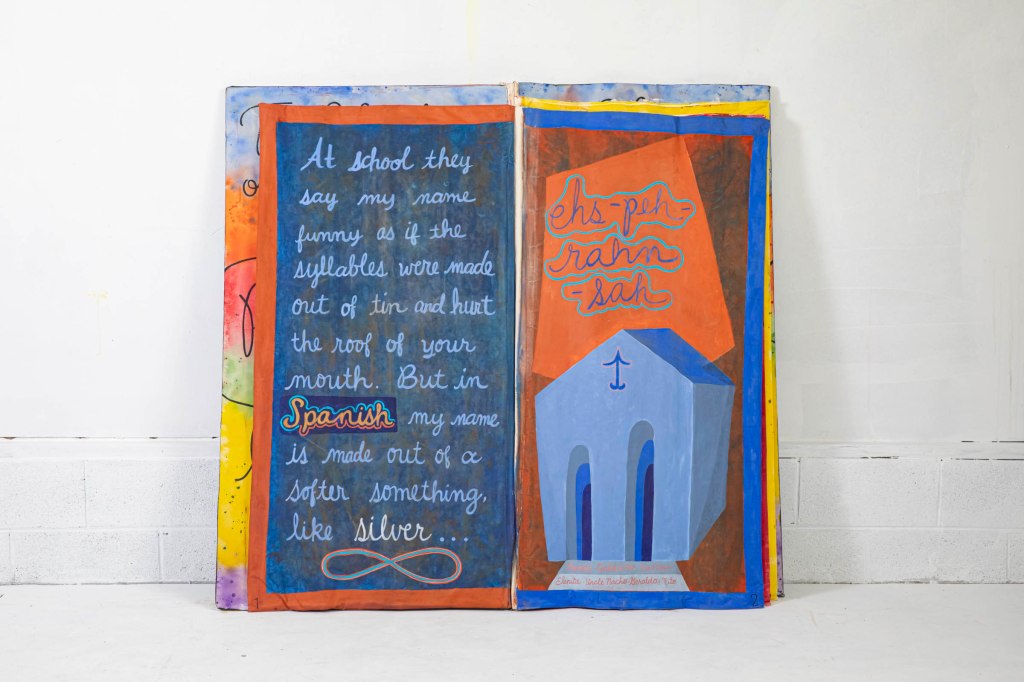 At school they
say my name
funny as if the
syllables were made
out of tin and hurt
the roof of your
mouth. But in
Spanish my name
is made out of a
softer something,
like silver...
ehs-peh-
rahn
-sah
Tencha Uncle Nacho Geraldo Tito